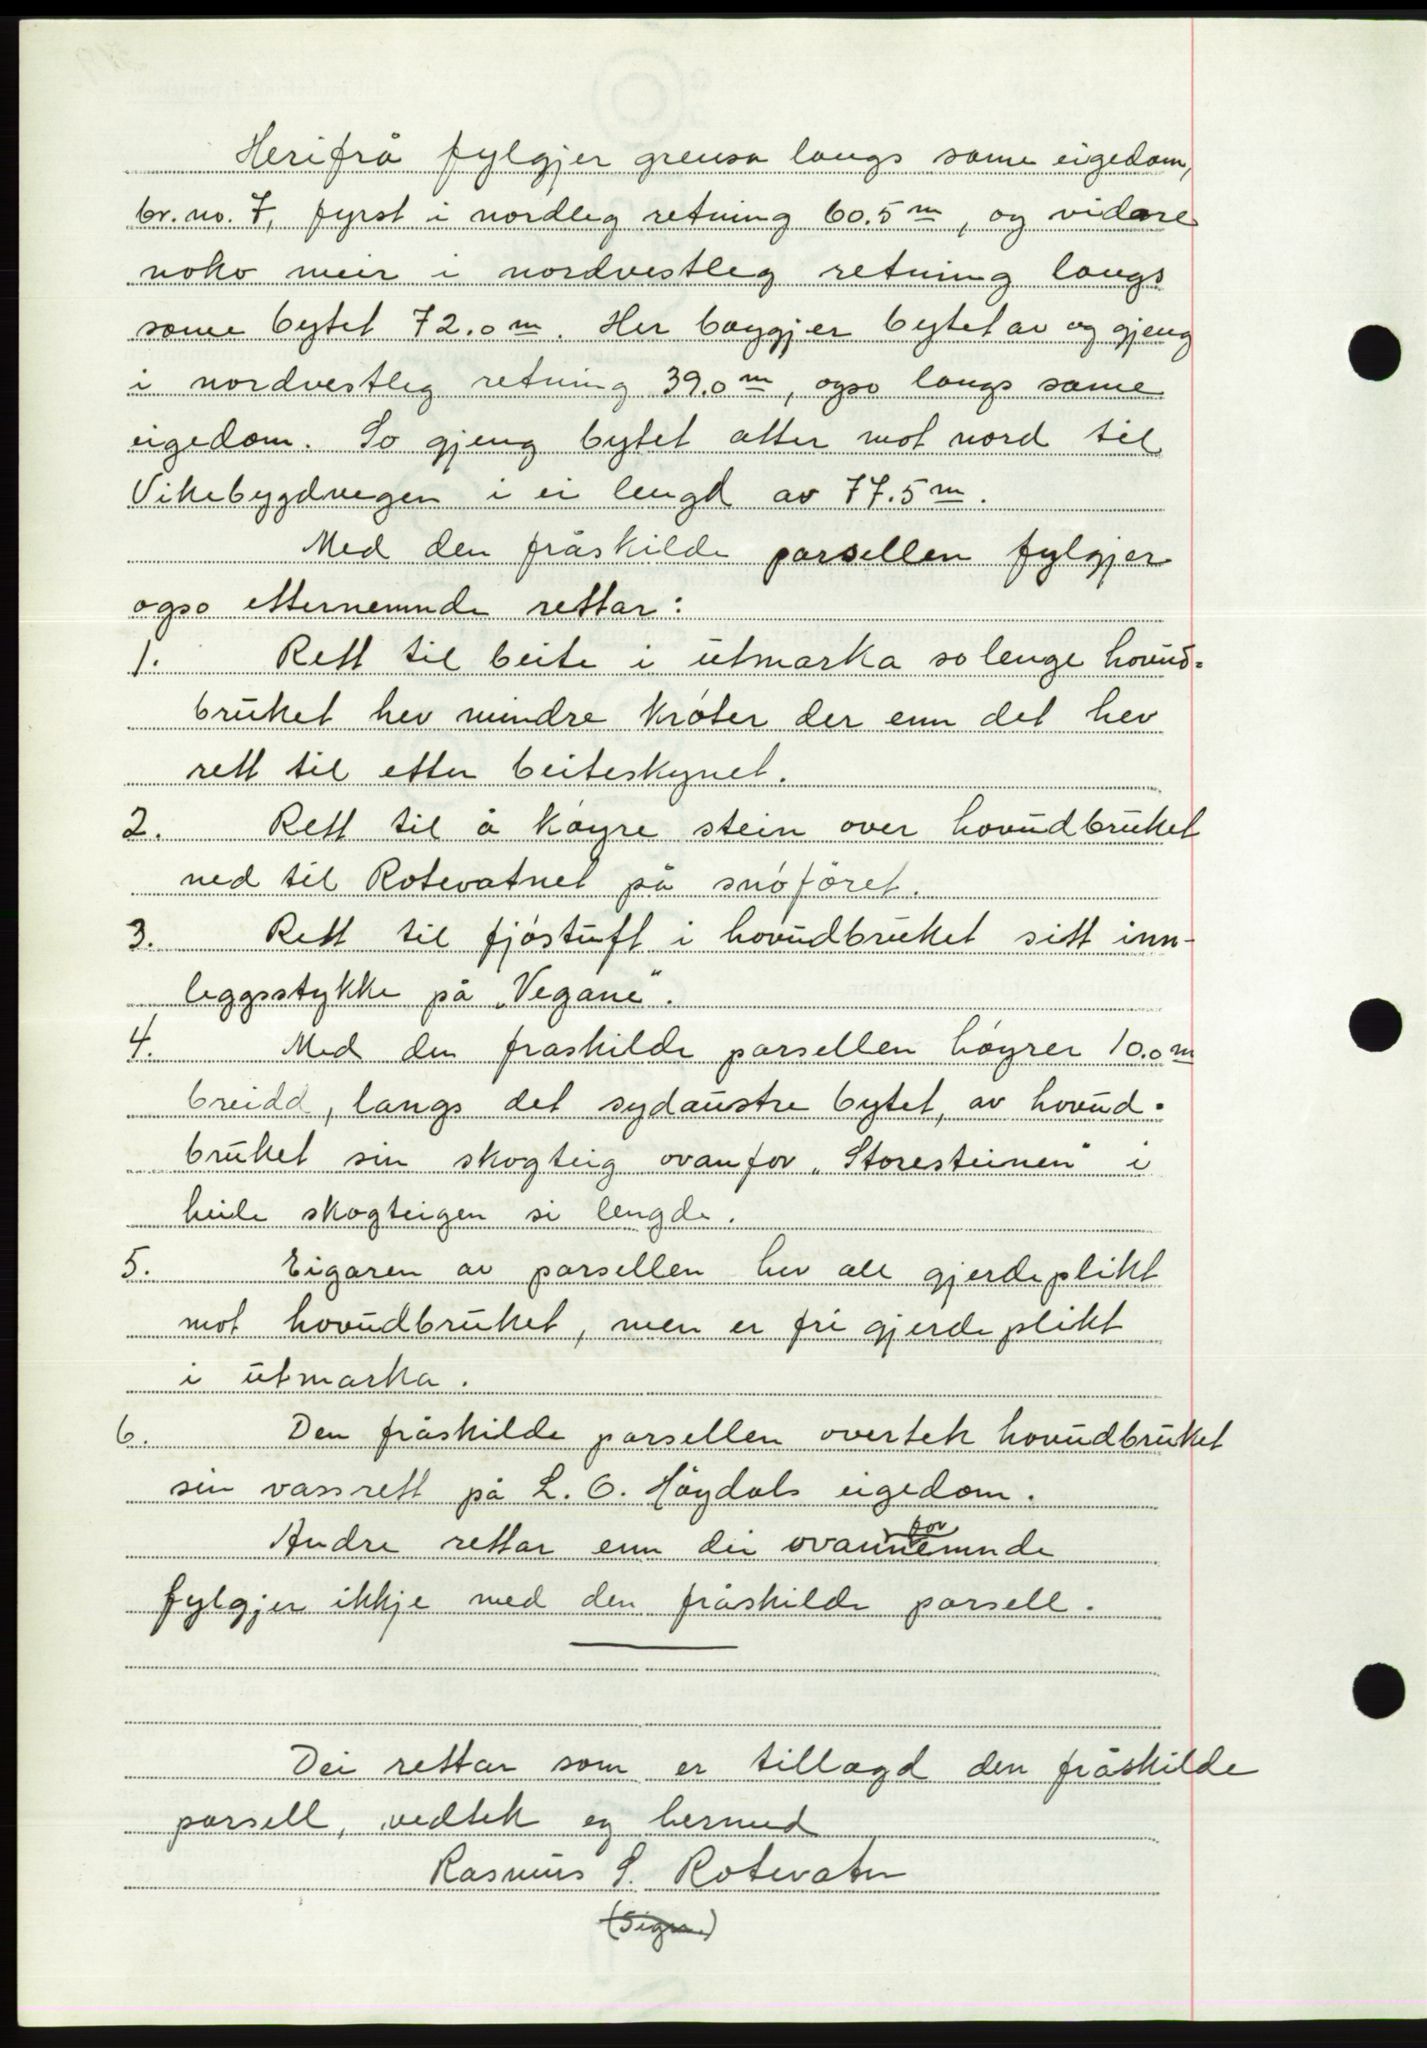 Herifrå fylgjer grensa langs same eigedom,
br. no. 7, fyrst i nordleg retning 60.5 m, og vidare
noko meir i nordvestleg retning langs
same bytet 72.0 m. Her bøygjer bytet av og gjeng
i nordvestleg retning 39.0 m, ogso langs same
eigedom. So gjeng bytet atter mot nord til
Vikebygdvegen i ei lengd av 77.5 m.
Med den fråskilde parsellen fylgjer
ogso etternemnde rettar:
1. Rett til beite i utmarka so lenge hovud-
bruket hev mindre krøter der enn det hev
rett til etter beiteskynet.
2. Rett til å køyre stein over hovudbruket
ned til Rotevatnet på snøföret.
3. Rett til fjøstuft i hovudbruket sitt inn-
leggsstykke på „Vegane".
4. Med den fraskilde parsellen høyrer 10.0 m
breidd, langs det sydaustre bytet, av hovud-
bruket sin skogteig ovanfor „Storesteinen" i
heile skogteigen si lengde.
5. Eigaren av parsellen hev all gjerdeplikt
mot hovudbruket, men er fri gjerdeplikt
i utmarka.
6. Den fråskilde parsellen overtek hovudbruket
sin vassrett på L. O. Høydals eigedom.
for
Andre rettar enn dei ovannemnde
fylgjer ikkje med den fråskilde parsell.
Dei rettar som er tillagd den fråskilde
parsell, vedtek eg hermed
Rasmus S. Rotevatn
(sign.)